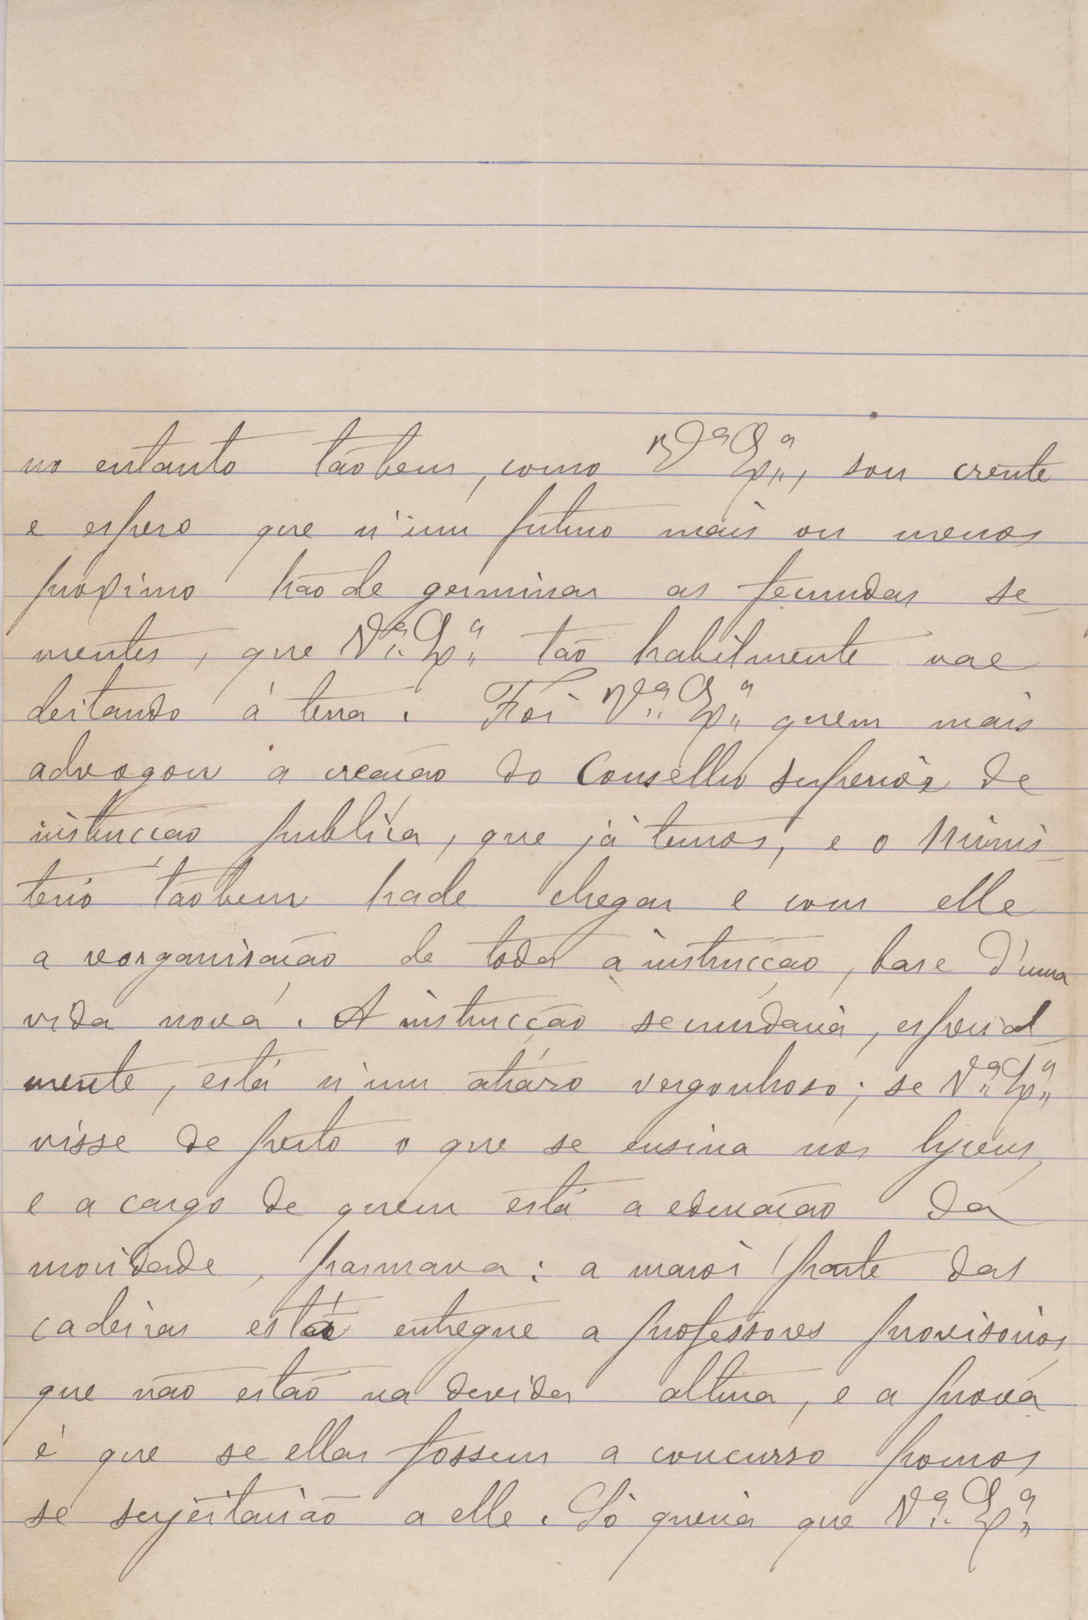 no entanto tãobem, como V.ª Ex.ª, sou crente
e espero que n'um futuro mais ou menos
proximo hãode germinar as fecundas se-
mentes, que V.ª Ex.ª tão habilmente vae
deitando á terra. Foi V.ª Ex.ª quem mais
advogou a creação do Conselho superior de
instrucção publica, que já temos, e o Minis-
terio tãobem hade chegar e com elle
a reorganisação de toda a instrucção, base d'uma
vida nova. A instrucção secundaria, especial-
mente, está n'um atrazo vergonhoso; se V.ª Ex.ª
visse de perto o que se ensina nos lyceus,
e a cargo de quem está a educação da
mocidade, pasmava: a maior parte das
cadeiras está entregue a professores provisorios,
que não estão na devida altura, e a prova
é que se ellas fossem a concurso poucos
se sujeitarião a elle. Só queria que V.ª Ex.ª